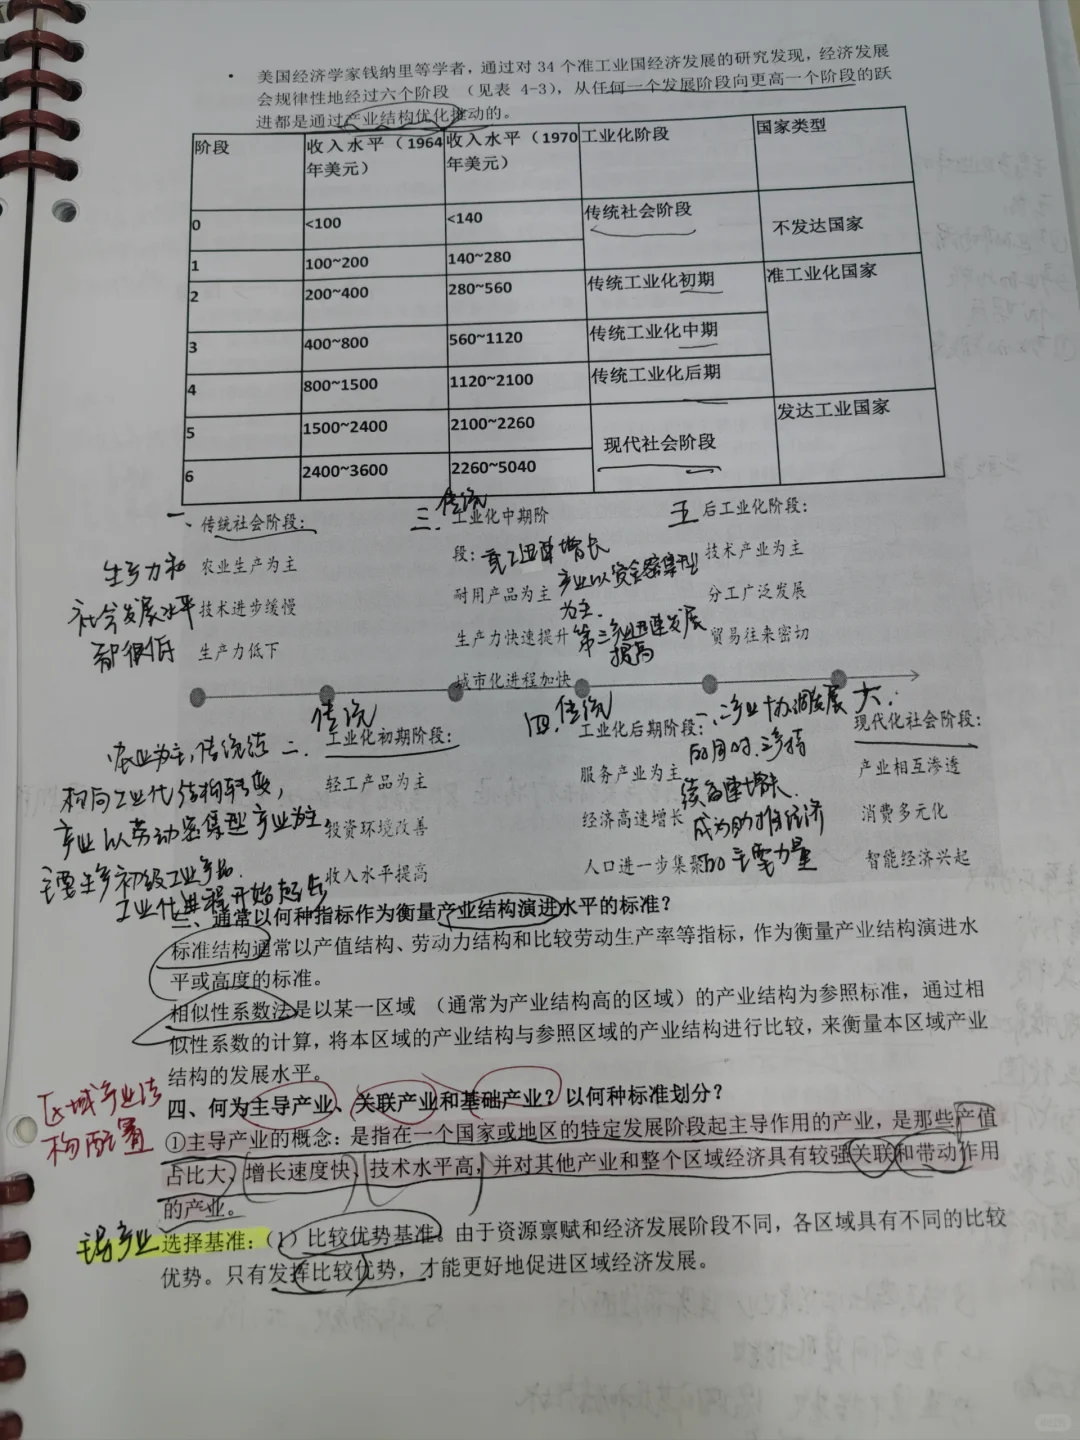 • 美国经济学家钱纳里等学者，通过对 34 个准工业国经济发展的研究发现，经济发展
会规律性地经过六个阶段 （见表 4-3），从任何一个发展阶段向更高一个阶段的跃
进都是通过产业结构优化推动的。
阶段 收入水平（1964年美元） 收入水平（1970年美元） 工业化阶段 国家类型
0 <100 <140 传统社会阶段 不发达国家
1 100~200 140~280
2 200~400 280~560 传统工业化初期 准工业化国家
3 400~800 560~1120 传统工业化中期
4 800~1500 1120~2100 传统工业化后期
5 1500~2400 2100~2260 现代社会阶段 发达工业国家
6 2400~3600 2260~5040
一、传统社会阶段：
农业生产为主
技术进步缓慢
生产力低下
生产力和
社会发展水平
都很低
三、传统
工业化中期阶
段：
耐用产品为主
生产力快速提升
城市化进程加快
重工业迅速增长
产业以资金密集型
为主.
第三产业迅速发展
提高
五 后工业化阶段：
技术产业为主
分工广泛发展
贸易往来密切
二、传统
工业化初期阶段：
轻工产品为主
投资环境改善
收入水平提高
农业为主,传统结
构向工业化结构转变,
产业以劳动密集型产业为主
主要生产初级工业产品.
工业化进程开始起步
四.传统
工业化后期阶段：
服务产业为主
经济高速增长
人口进一步集聚
一、二产业协调发展
的同时,三产持
续高速增长.
成为助推经济
的主要力量
六:
现代化社会阶段：
产业相互渗透
消费多元化
智能经济兴起
三、通常以何种指标作为衡量产业结构演进水平的标准？
标准结构通常以产值结构、劳动力结构和比较劳动生产率等指标，作为衡量产业结构演进水
平或高度的标准。
相似性系数法是以某一区域 （通常为产业结构高的区域）的产业结构为参照标准，通过相
似性系数的计算，将本区域的产业结构与参照区域的产业结构进行比较，来衡量本区域产业
结构的发展水平。
区域产业结
构配置
四、何为主导产业、关联产业和基础产业？以何种标准划分？
①主导产业的概念：是指在一个国家或地区的特定发展阶段起主导作用的产业，是那些产值
占比大、增长速度快、技术水平高，并对其他产业和整个区域经济具有较强关联和带动作用
的产业。
主导产业 选择基准：（1）比较优势基准。由于资源禀赋和经济发展阶段不同，各区域具有不同的比较
优势。只有发挥比较优势，才能更好地促进区域经济发展。